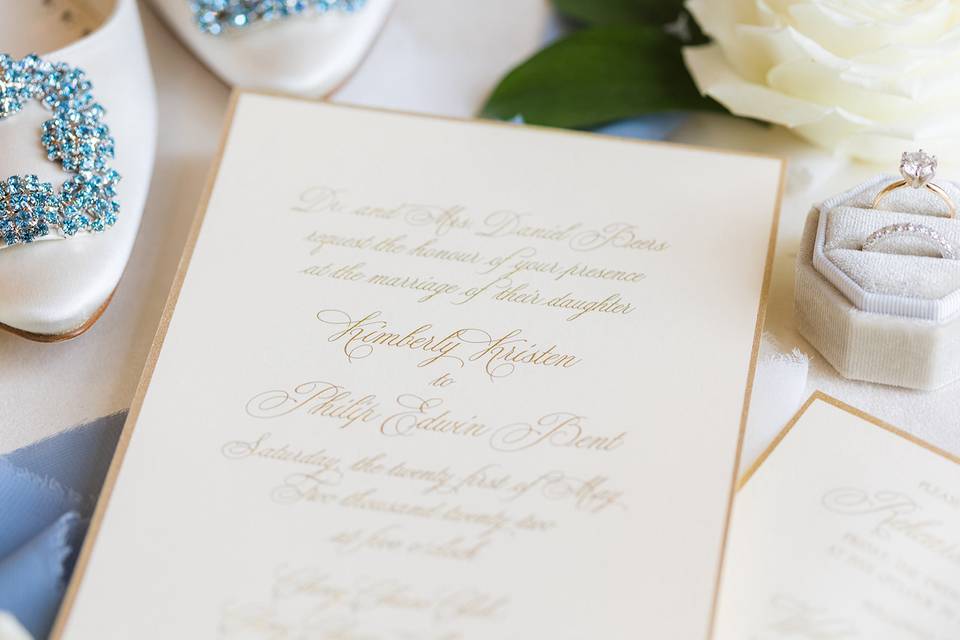 Dr. and Mrs. Daniel Beers
request the honour of your presence
at the marriage of their daughter
Kimberly Kristen
to
Philip Edwin Bent
Saturday, the twenty first of May
Two thousand twenty two
at five o'clock
PLEAS